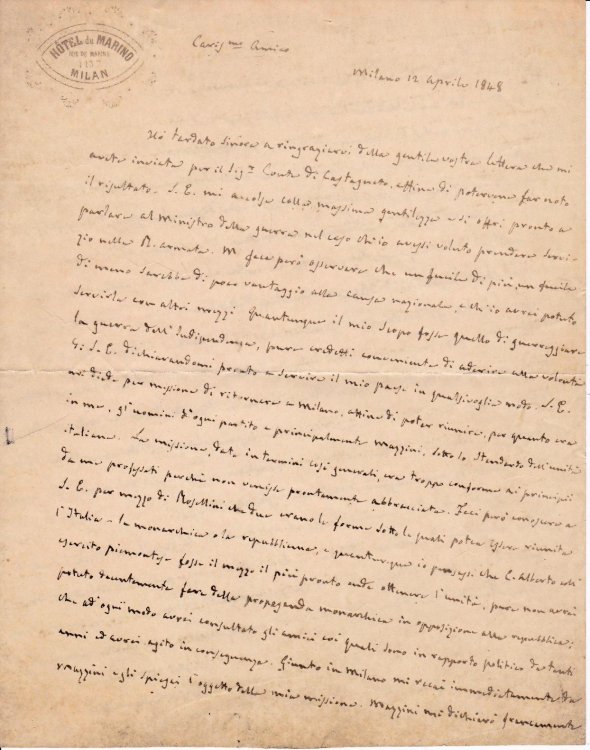 HÔTEL du MARINO
RUE DE MARINO
1135
MILAN
Cariss.mo Amico
Milano 12 Aprile 1848
Hò tardato sinora a ringraziarvi della gentile vostra lettera che mi
avete inviata per il Sig.r Conte di Castagneto, affine di potervene far noto
il risultato. S. E. mi accolse colla massima gentilezza e si offrì pronto a
parlare al Ministro della guerra nel caso ch'io avessi voluto prendere servi-
zio nella R. armata. Mi fece però osservare che un fucile di più, un fucile
di meno sarebbe di poco vantaggio alla causa nazionale e ch'io avrei potuto
servirla con altri mezzi. Quantunque il mio scopo fosse quello di guerreggiare
la guerra dell'Indipendenza, pure credetti conveniente di aderire alla volontà
di S. E. dichiarandomi pronto a servire il mio paese in qualsivoglia modo. S. E.
mi diede per missione di ritornare a Milano, affine di poter riunire, per quanto era
in me, gl'uomini d'ogni partito e principalmente Mazzini, sotto lo stendardo dell'unità
italiana. La missione, data in termini così generali, era troppo conforme ai principi
da me professati perchè non venisse prontamente abbracciata. Feci però conoscere a
S. E. per mezzo di Rosellini che due erano le forme sotto le quali potea esser riunita
l'Italia - la monarchica o la repubblicana, e quantunque io pensassi che C. Alberto coll'
esercito piemontese fosse il mezzo il più pronto onde ottenere l'unità, pure non avrei
potuto decentemente fare della propaganda monarchica in opposizione alla repubblica;
che ad ogni modo avrei consultato gli amici coi quali sono in rapporto politico da tanti
anni ed avrei agito in conseguenza. Giunto in Milano mi recai immediatamente da
Mazzini e gli spiegai l'oggetto della mia missione. Mazzini mi dichiarò francamente